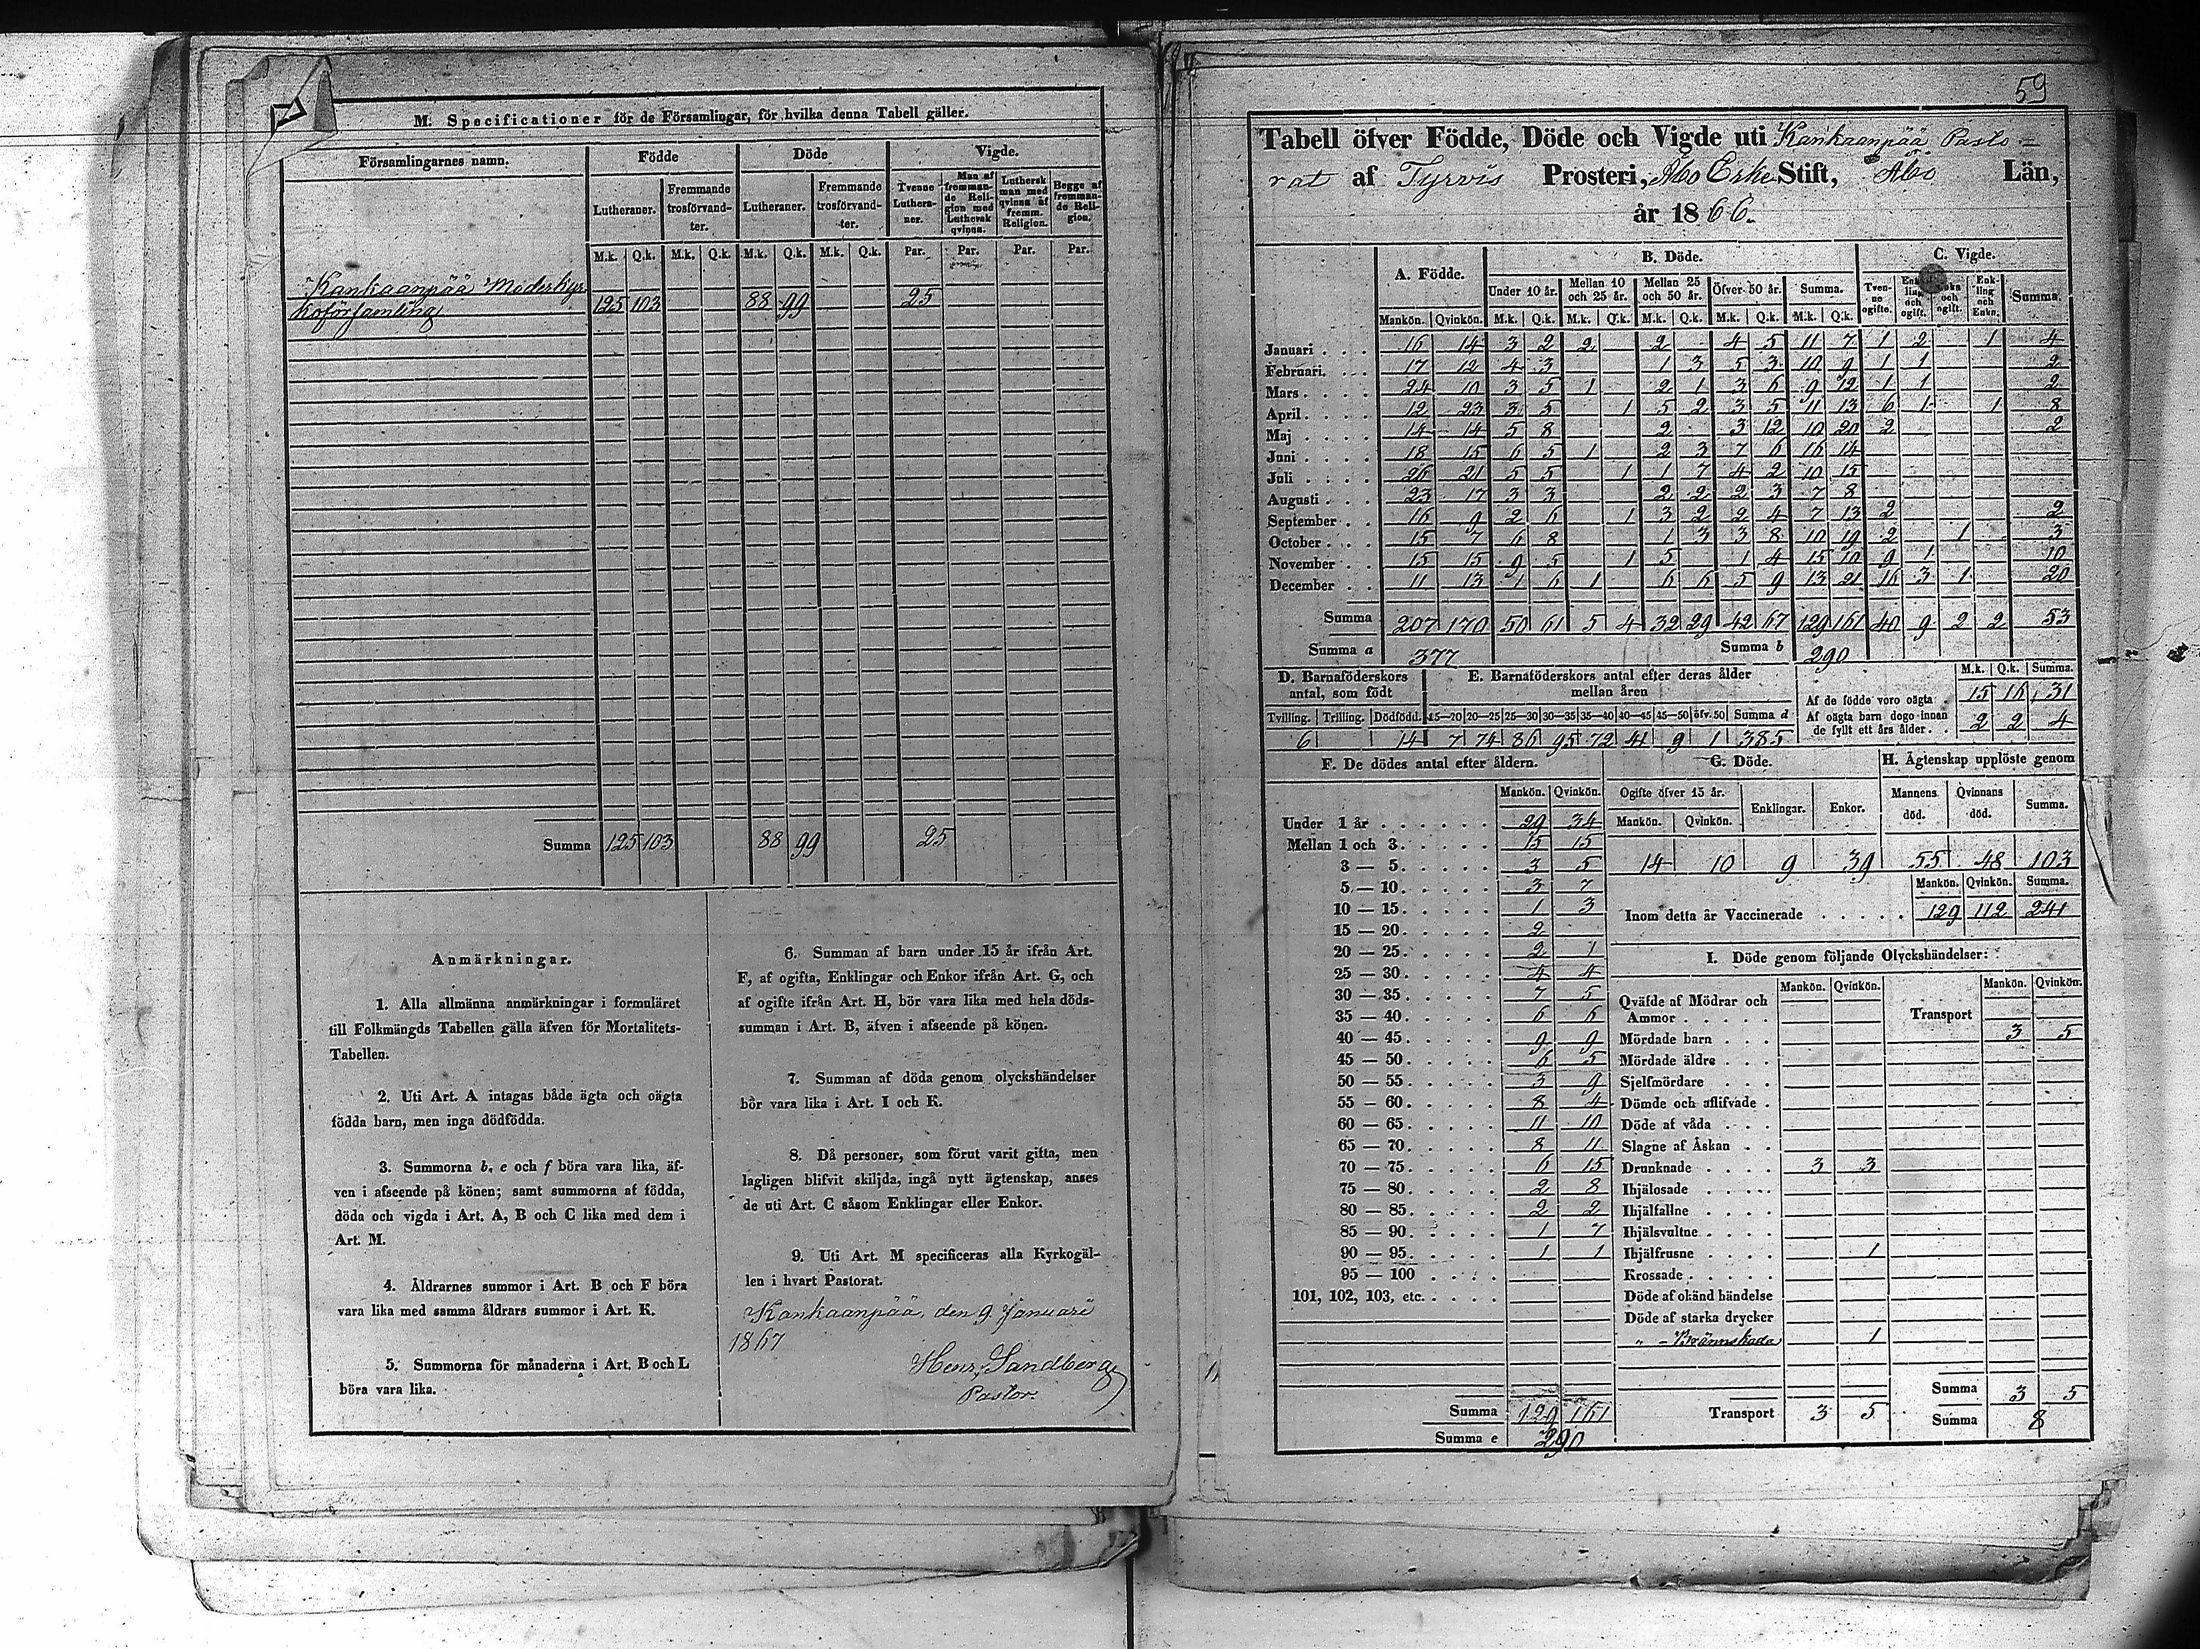 M. Specificationer för de Församlingar, för hvilka denna Tabell gäller.
Församlingarnes namn. Födde Döde Vigde.
Lutheraner. Fremmande trosförvandter. Lutheraner. Fremmande trosförvandter. Tvenne Lutheraner. Man af fremmande Religion med Luthersk qvinna. Luthersk man med qvinna af fremm. Religion. Begge af fremmande Religion.
M.k. Q.k. M.k. Q.k. M.k. Q.k. M.k. Q.k. Par. Par. Par. Par.
Kankaanpää Moderkyr
koförsamling 125 103 88 99 25
Summa 125 103 88 99 25
Anmärkningar.
1. Alla allmänna anmärkningar i formuläret
till Folkmängds Tabellen gälla äfven för Mortalitets-
Tabellen.
2. Uti Art. A intagas både ägta och oägta
födda barn, men inga dödfödda.
3. Summorna b, e och f böra vara lika, äf-
ven i afseende på könen; samt summorna af födda,
döda och vigda i Art. A, B och C lika med dem i
Art. M.
4. Åldrarnes summor i Art. B och F böra
vara lika med samma åldrars summor i Art. K.
5. Summorna för månaderna i Art. B och L
böra vara lika.
6. Summan af barn under 15 år ifrån Art.
F, af ogifta, Enklingar och Enkor ifrån Art. G, och
af ogifte ifrån Art. H, bör vara lika med hela döds-
summan i Art. B, äfven i afseende på könen.
7. Summan af döda genom olyckshändelser
bör vara lika i Art. I och K.
8. Då personer, som förut varit gifta, men
lagligen blifvit skiljda, ingå nytt ägtenskap, anses
de uti Art. C såsom Enklingar eller Enkor.
9. Uti Art. M specificeras alla Kyrkogäl-
len i hvart Pastorat.
Kankaanpää, den 9 Januari
1867
Henr. Sandberg
Pastor.
59
Tabell öfver Födde, Döde och Vigde uti Kankaanpää Pasto=
rat af Tyrvis Prosteri, Åbo Erke Stift, Åbo Län,
år 1866.
A. Födde. B. Döde. C. Vigde.
Under 10 år. Mellan 10 och 25 år. Mellan 25 och 50 år. Öfver 50 år. Summa. Tvenne ogifte. och ogift. och ogift. Enkling och Enka. Summa.
Mankön. Qvinkön. M.k. Q.k. M.k. Q.k. M.k. Q.k. M.k. Q.k. M.k. Q.k.
Januari 16 14 3 2 2 2 4 5 11 7 1 2 1 4
Februari. 17 12 4 3 1 3 5 3 10 9 1 1 2
Mars 24 10 3 5 1 2 1 3 6 9 12 1 1 2
April 12 23 3 5 1 5 2 3 5 11 13 6 1 1 8
Maj 14 14 5 8 2 3 12 10 20 2 2
Juni 18 15 6 5 1 2 3 7 6 16 14
Juli 26 21 5 5 1 1 7 4 2 10 15
Augusti 23 17 3 3 2 2 2 3 7 8
September 16 9 2 6 1 3 2 2 4 7 13 2 2
October 15 7 6 8 1 3 3 8 10 19 2 1 3
November 15 15 9 5 1 5 1 4 15 10 9 1 10
December 11 13 1 6 1 6 6 5 9 13 21 16 3 1 20
Summa 207 170 50 61 5 4 32 29 42 67 129 161 40 9 2 2 53
Summa a 377 Summa b 290
D. Barnaföderskors antal, som födt
Tvilling. Trilling. Dödfödd.
6 14
E. Barnaföderskors antal efter deras ålder mellan åren
15—20 20—25 25—30 30—35 35—40 40—45 45—50 öfv. 50 Summa d
7 74 86 95 72 41 9 1 385
M.k. Q.k. Summa.
Af de födde voro oägta 15 16 31
Af oägta barn dogo innan de fyllt ett års ålder. 2 2 4
F. De dödes antal efter åldern.
Mankön. Qvinkön.
Under 1 år 29 34
Mellan 1 och 3. 15 15
3 — 5. 3 5
5 — 10. 3 7
10 — 15. 1 3
15 — 20. 2
20 — 25. 2 1
25 — 30. 4 4
30 — 35. 7 5
35 — 40. 6 6
40 — 45. 9 9
45 — 50. 6 5
50 — 55. 3 9
55 — 60. 8 4
60 — 65. 11 10
65 — 70. 8 11
70 — 75. 6 15
75 — 80. 2 8
80 — 85. 2 2
85 — 90. 1 7
90 — 95. 1 1
95 — 100
101, 102, 103, etc.
Summa 129 161
Summa e 290
G. Döde.
Ogifte öfver 15 år. Enklingar. Enkor.
Mankön. Qvinkön.
14 10 9 39
H. Ägtenskap upplöste genom
Mannens död. Qvinnans död. Summa.
55 48 103
Mankön. Qvinkön. Summa.
Inom detta år Vaccinerade 129 112 241
I. Döde genom följande Olyckshändelser:
Mankön. Qvinkön. Mankön. Qvinkön.
Qväfde af Mödrar och
Ammor
Transport 3 5
Mördade barn
Mördade äldre
Sjelfmördare
Dömde och aflifvade
Döde af våda
Slagne af Åskan
Drunknade 3 3
Ihjälosade
Ihjälfallne
Ihjälsvultne
Ihjälfrusne 1
Krossade
Döde af okänd händelse
Döde af starka drycker
„ - Brännskada 1
Summa 3 5
Transport 3 5 Summa 8